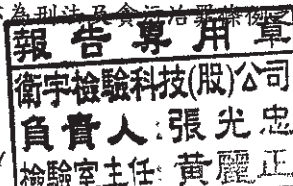 為刑法及貪污治罪條例之
報告專用章
衛宇檢驗科技(股)公司
負責人:張光忠
檢驗室主任:黃麗正